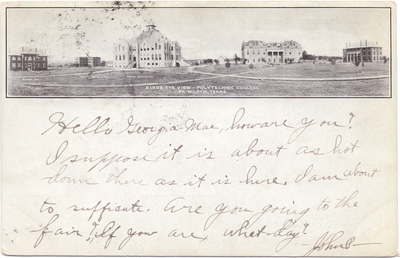 BIRDS EYE VIEW - POLYTECHNIC COLLEGE
FT. WORTH, TEXAS.
Hello Georgia Mae, how are you?
I suppose it is about as hot
down there as it is here. I am about
to sufficate. Are you going to the
fair? If you are, what day?